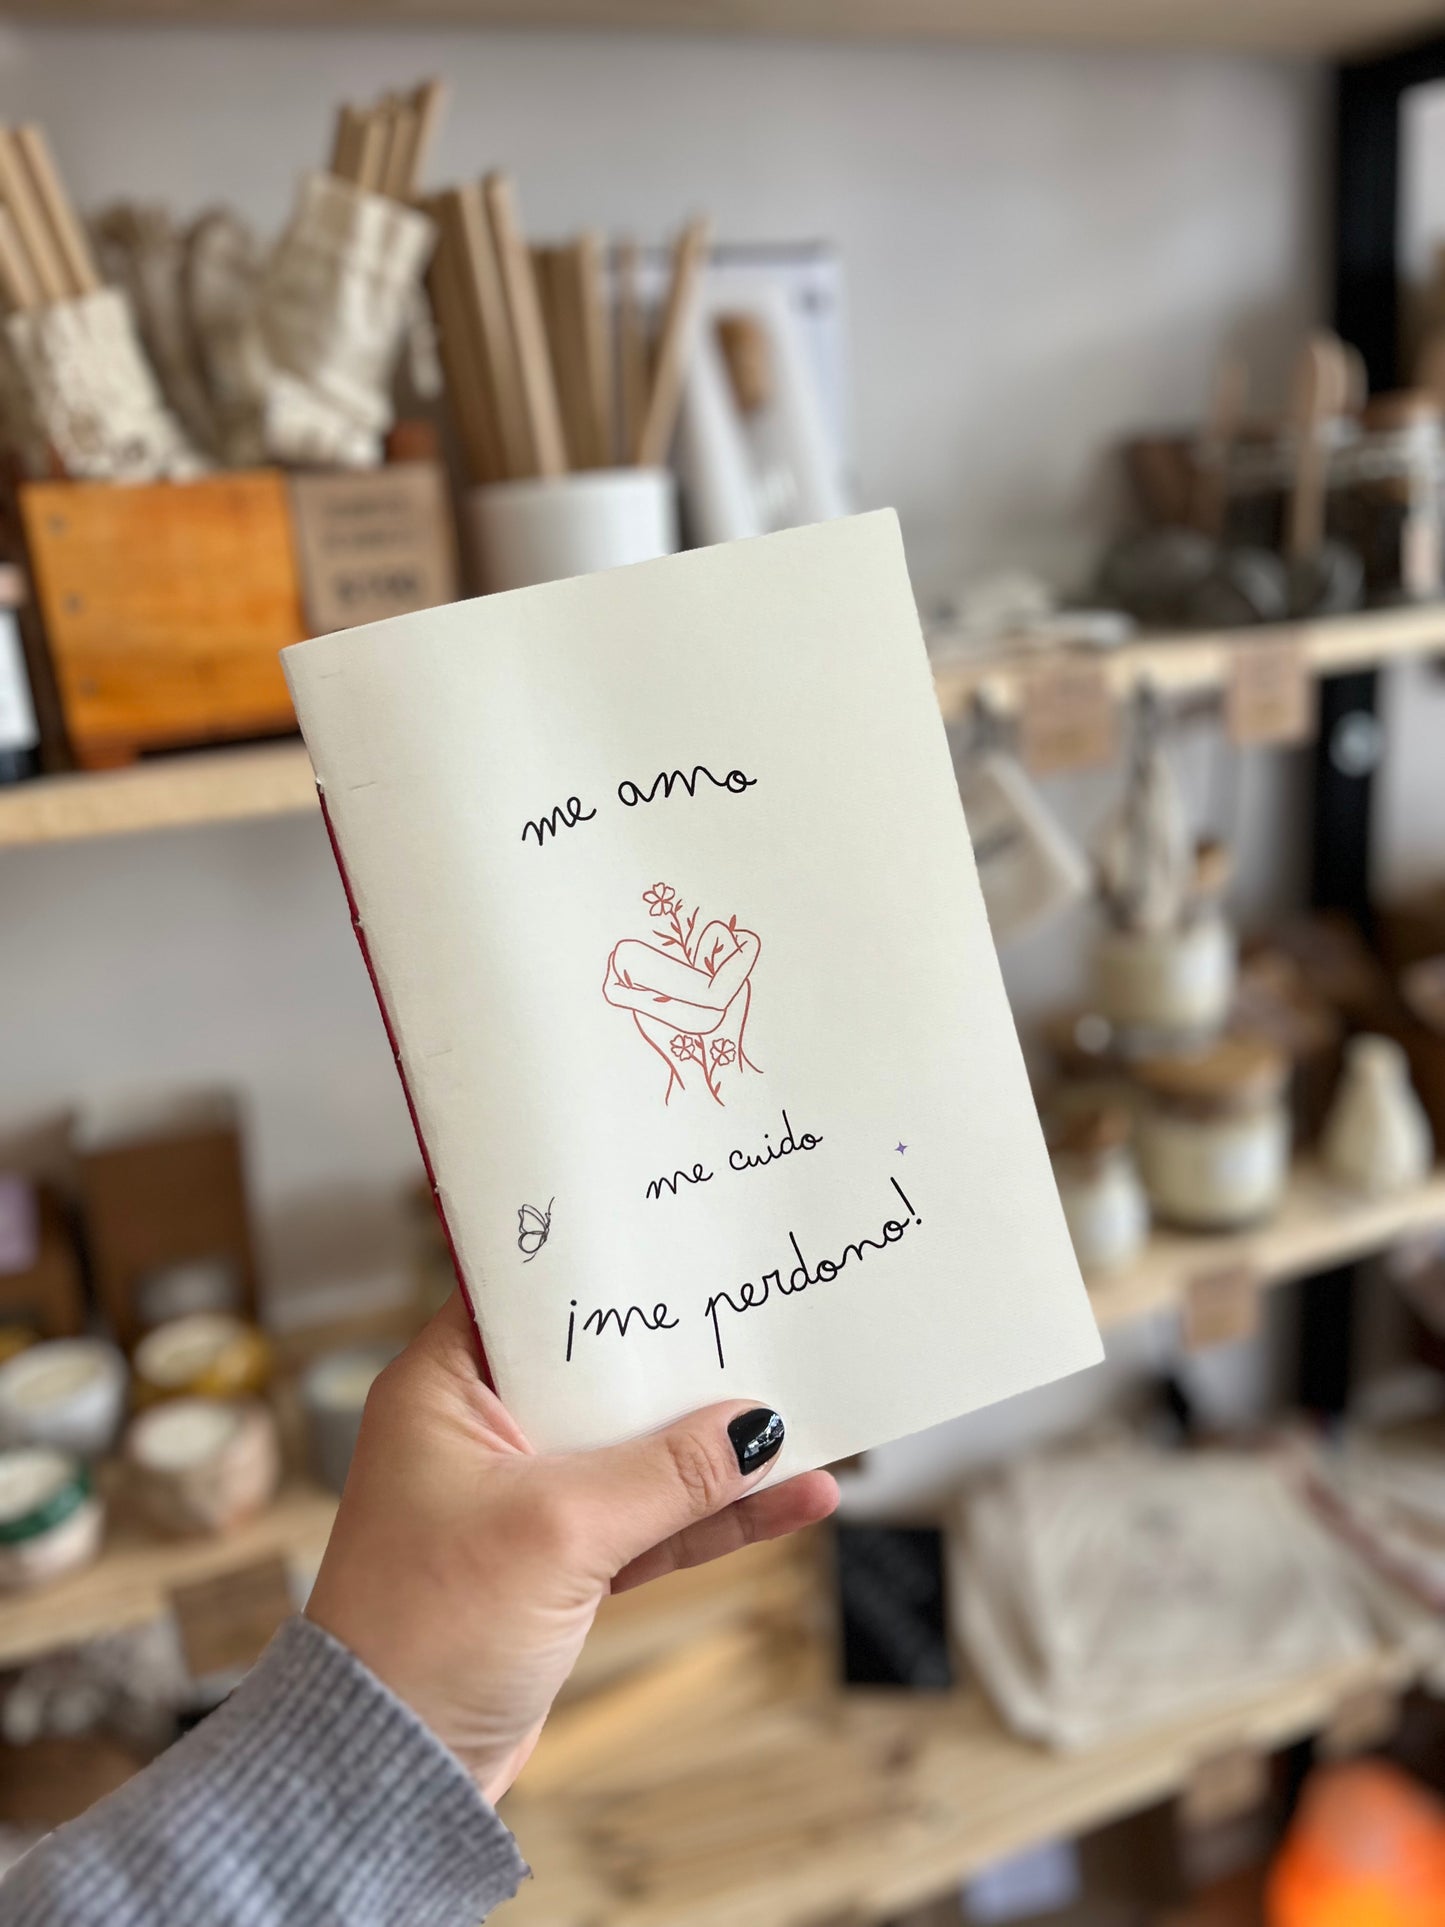 me amo
me cuido
¡me perdono!